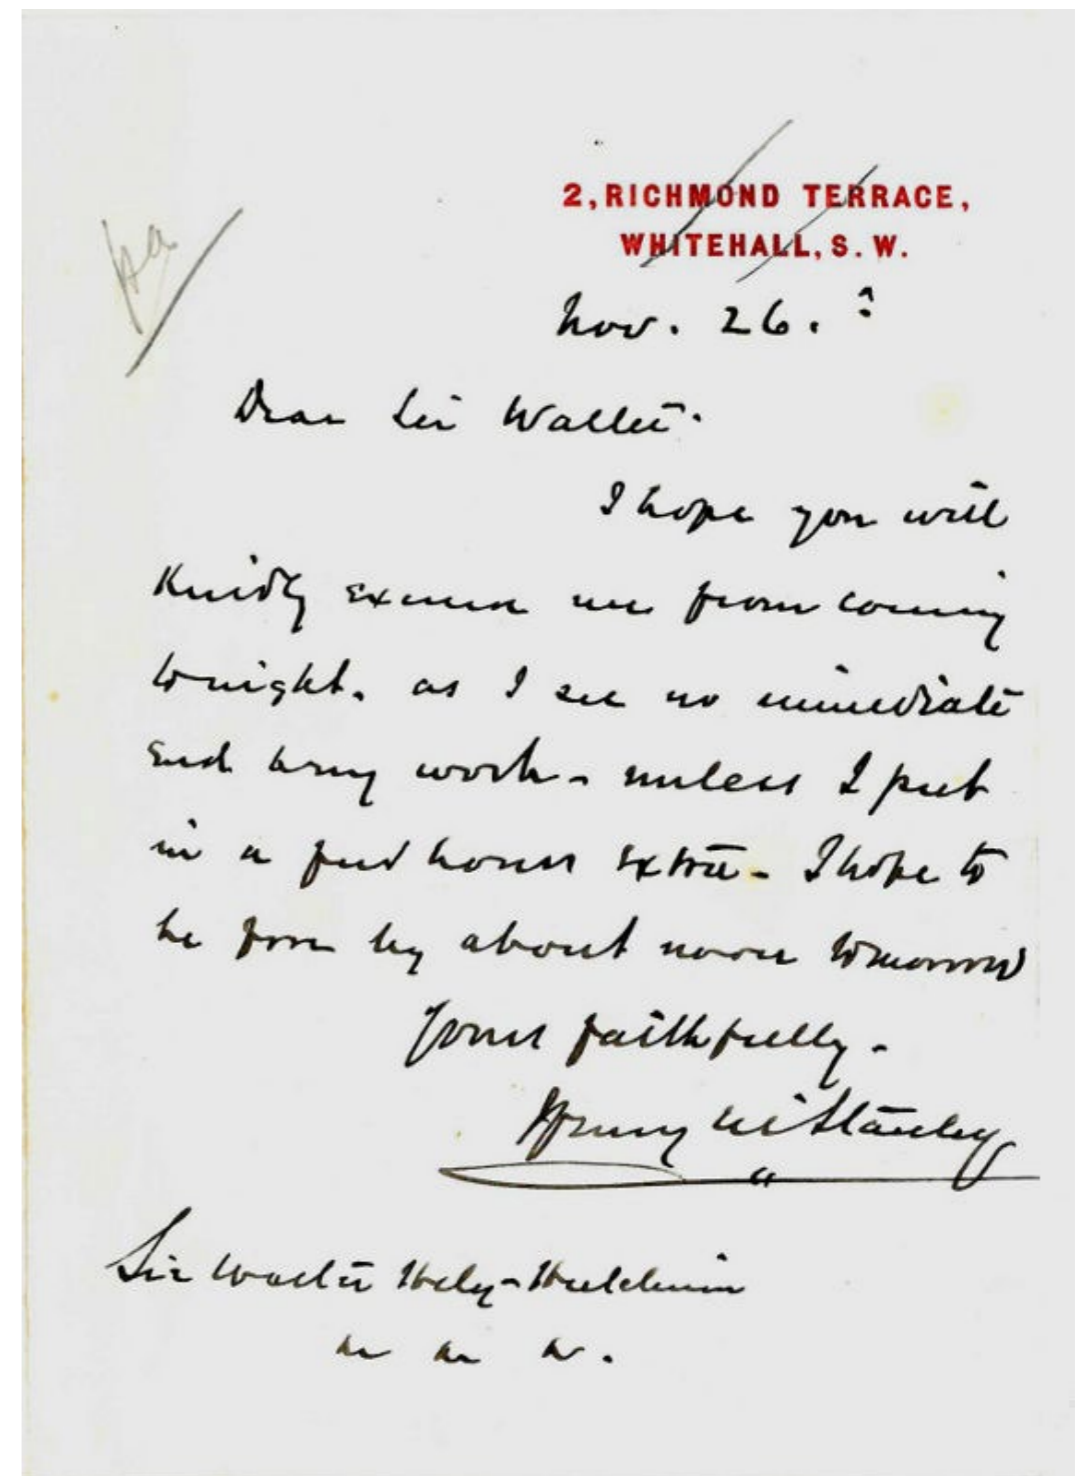 2, RICHMOND TERRACE,
WHITEHALL, S. W.
Nov. 26.
Dear Sir Walter.
I hope you will
Kindly excuse me from coming
tonight. as I see no immediate
end to my work - unless I put
in a few hours extra - I hope to
be free by about noon tomorrow
Yours faithfully.
Henry M Stanley
Sir Walter Hely-Hutchinson